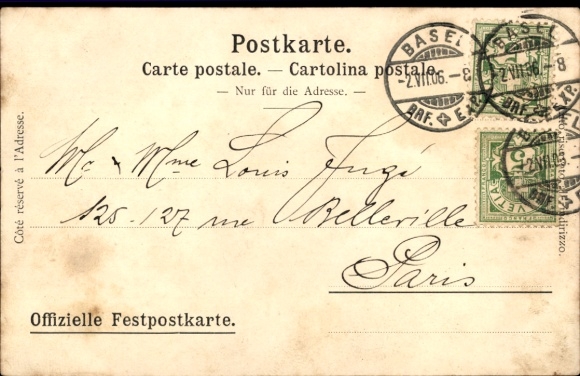 Postkarte.
Carte postale. — Cartolina postale.
— Nur für die Adresse. —
BASEL
-2.VII.06.-8
BRF. EXP.
BASEL
-2.VII.06.-8
BRF. EXP.
Côté réservé à l'Adresse.
Mme Louis
125-127 rue Belleville
Paris
Offizielle Festpostkarte.
HELVETIA
FRANCO
5